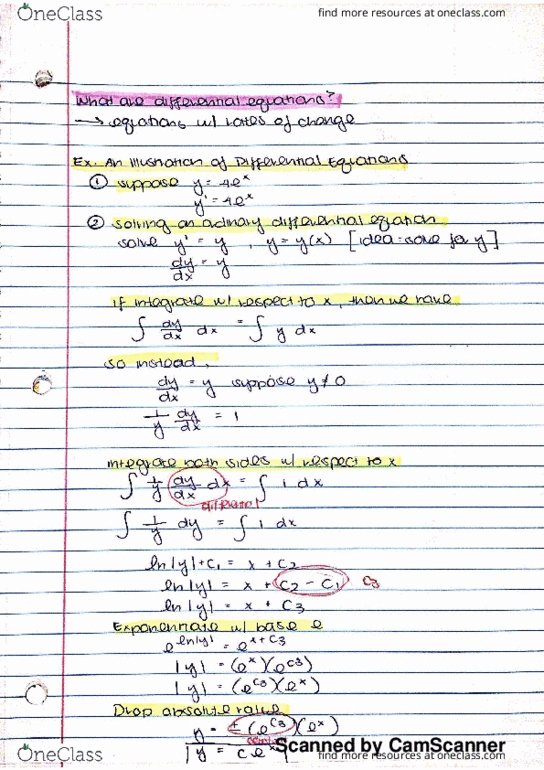 OneClass find more resources at oneclass.com
What are differential equations?
→ equations w/ rates of change
Ex. An Illustration of Differential Equations
① suppose y = 4e^x
y' = 4e^x
② solving an odinary differential equation
solve y' = y , y = y(x) [idea: solve for y]
dy/dx = y
if integrate w/ respect to x, then we have
∫ dy/dx dx = ∫ y dx
so instead,
dy/dx = y suppose y ≠ 0
1/y dy/dx = 1
integrate both sides w/ respect to x
∫ 1/y dy/dx dx = ∫ 1 dx
∫ 1/y dy = ∫ 1 dx
ln|y| + C₁ = x + C₂
ln|y| = x + C₂ - C₁ C₃
ln|y| = x + C₃
Exponentiate w/ base e
e^ln|y| = e^x+C₃
|y| = (e^x)(e^C₃)
|y| = (e^C₃)(e^x)
Drop absolute value
y = ± (e^C₃)(e^x)
y = ce^x
Scanned by CamScanner
OneClass find more resources at oneclass.com